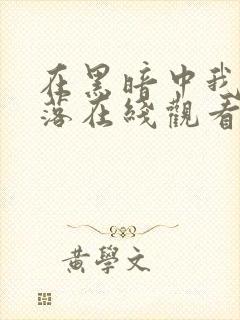 在黑暗中我
落在綫觀看
黃學文